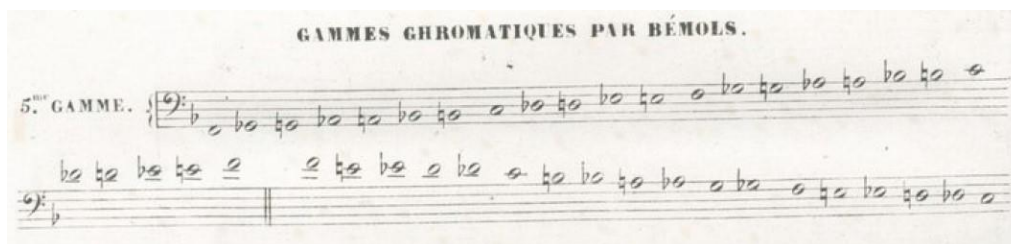 GAMMES GHROMATIQUES PAR BÉMOLS.
5.me GAMME.